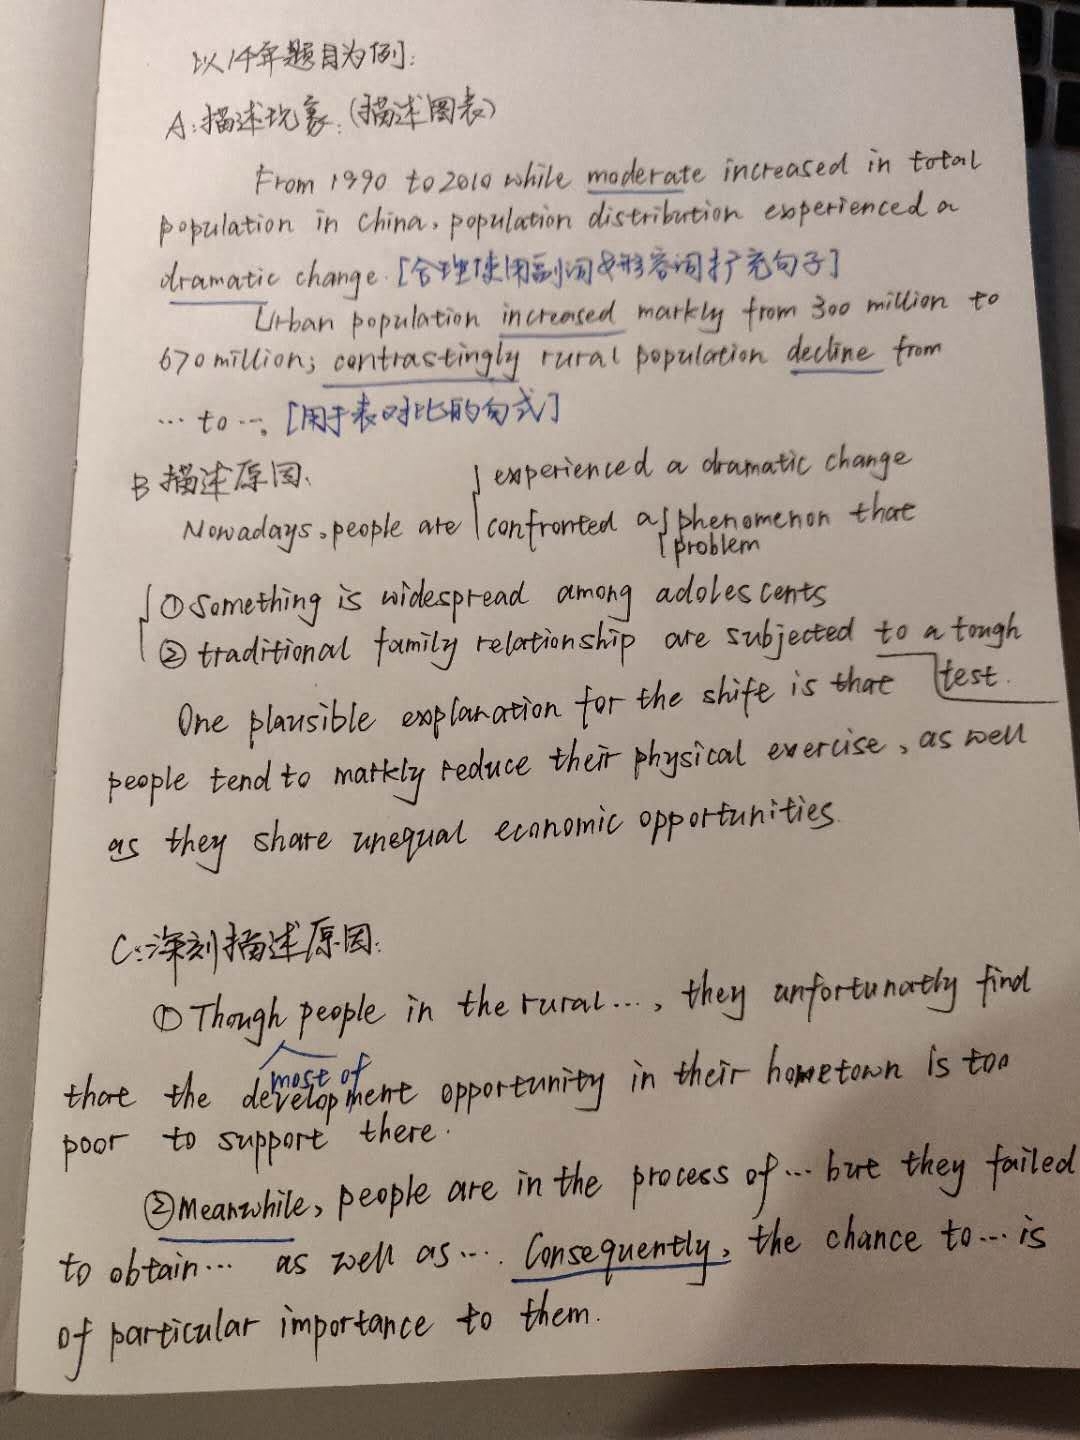 以14年题目为例:
A:描述现象:(描述图表)
From 1990 to 2010 while moderate increased in total
population in China, population distribution experienced a
dramatic change. [合理使用副词及形容词扩充句子]
Urban population increased markly from 300 million to
670 million; contrastingly rural population decline from
… to …. [用于表对比的句式]
B 描述原因:
Nowadays, people are { experienced a dramatic change
confronted a { phenomenon that
problem
① Something is widespread among adolescents
② traditional family relationship are subjected to a tough
test.
One plausible explanation for the shift is that
people tend to markly reduce their physical exercise, as well
as they share unequal economic opportunities.
C:深刻描述原因:
① Though people in the rural …, they unfortunatly find
most of
that the development opportunity in their hometown is too
poor to support there.
② Meanwhile, people are in the process of … but they failed
to obtain … as well as …. Consequently, the chance to … is
of particular importance to them.